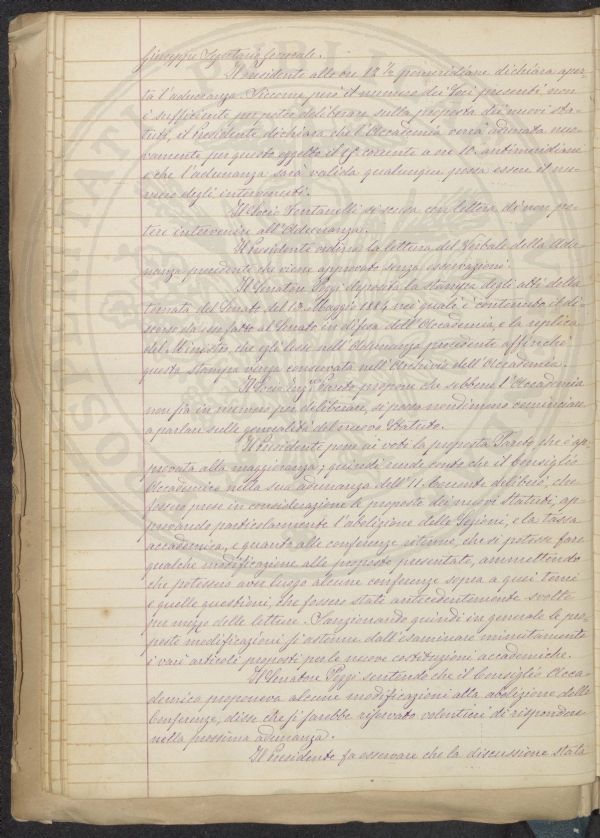 Giuseppe Segretario Generale.
Il Presidente alle ore 12 ½ pomeridiane dichiara aper-
ta l'adunanza. Siccome però il numero dei Soci presenti non
è sufficiente per poter deliberare sulla proposta dei nuovi Sta-
tuti, il Presidente dichiara che l'Accademia verrà adunata nuo-
vamente per questo oggetto il corrente a ore 10 antimeridiane
e che l'adunanza sarà valida qualunque possa essere il nu-
mero degli intervenuti.
Il Socio Fontanelli si scusa con lettera di non po-
tere intervenire all'Adunanza.
Il Presidente ordina la lettura del Verbale della Adu-
nanza precedente che viene approvato senza osservazioni.
Il Senatore Poggi deposita la stampa degli atti della
tornata del Senato del 13 Maggio 1884 nei quali è contenuto il di-
scorso da lui fatto al Senato in difesa dell'Accademia, e la replica
del Ministro, che egli lesse nell'Adunanza precedente affinché
questa stampa venga conservata nell'Archivio dell'Accademia.
Il Socio Ingre Pareto propone che sebbene l'Accademia
non sia in numero per deliberare, si possa nondimeno cominciare
a parlare sulle generalità del nuovo Statuto.
Il Presidente pone ai voti la proposta Pareto che è ap-
provata alla maggioranza; quindi rende conto che il Consiglio
Accademico nella sua adunanza dell'11 Corrente deliberò, che
fossero prese in considerazione le proposte dei nuovi Statuti, ap-
provando particolarmente l'abolizione delle Sezioni, e la tassa
accademica, e quanto alle conferenze ritenne, che si potesse fare
qualche modificazione alle proposte presentate, ammettendo
che potessero aver luogo alcune conferenze sopra a quei temi
e quelle questioni, che fossero state antecedentemente svolte
per mezzo delle letture. Sanzionando quindi in generale le pro-
poste modificazioni si astenne dall'esaminare minutamente
i vari articoli proposti per le nuove costituzioni accademiche.
Il Senatore Poggi sentendo che il Consiglio Acca-
demico proponeva alcune modificazioni alla abolizione delle
Conferenze, disse che si sarebbe riservato volentieri di rispondere
nella prossima adunanza.
Il Presidente fa osservare che la discussione stata